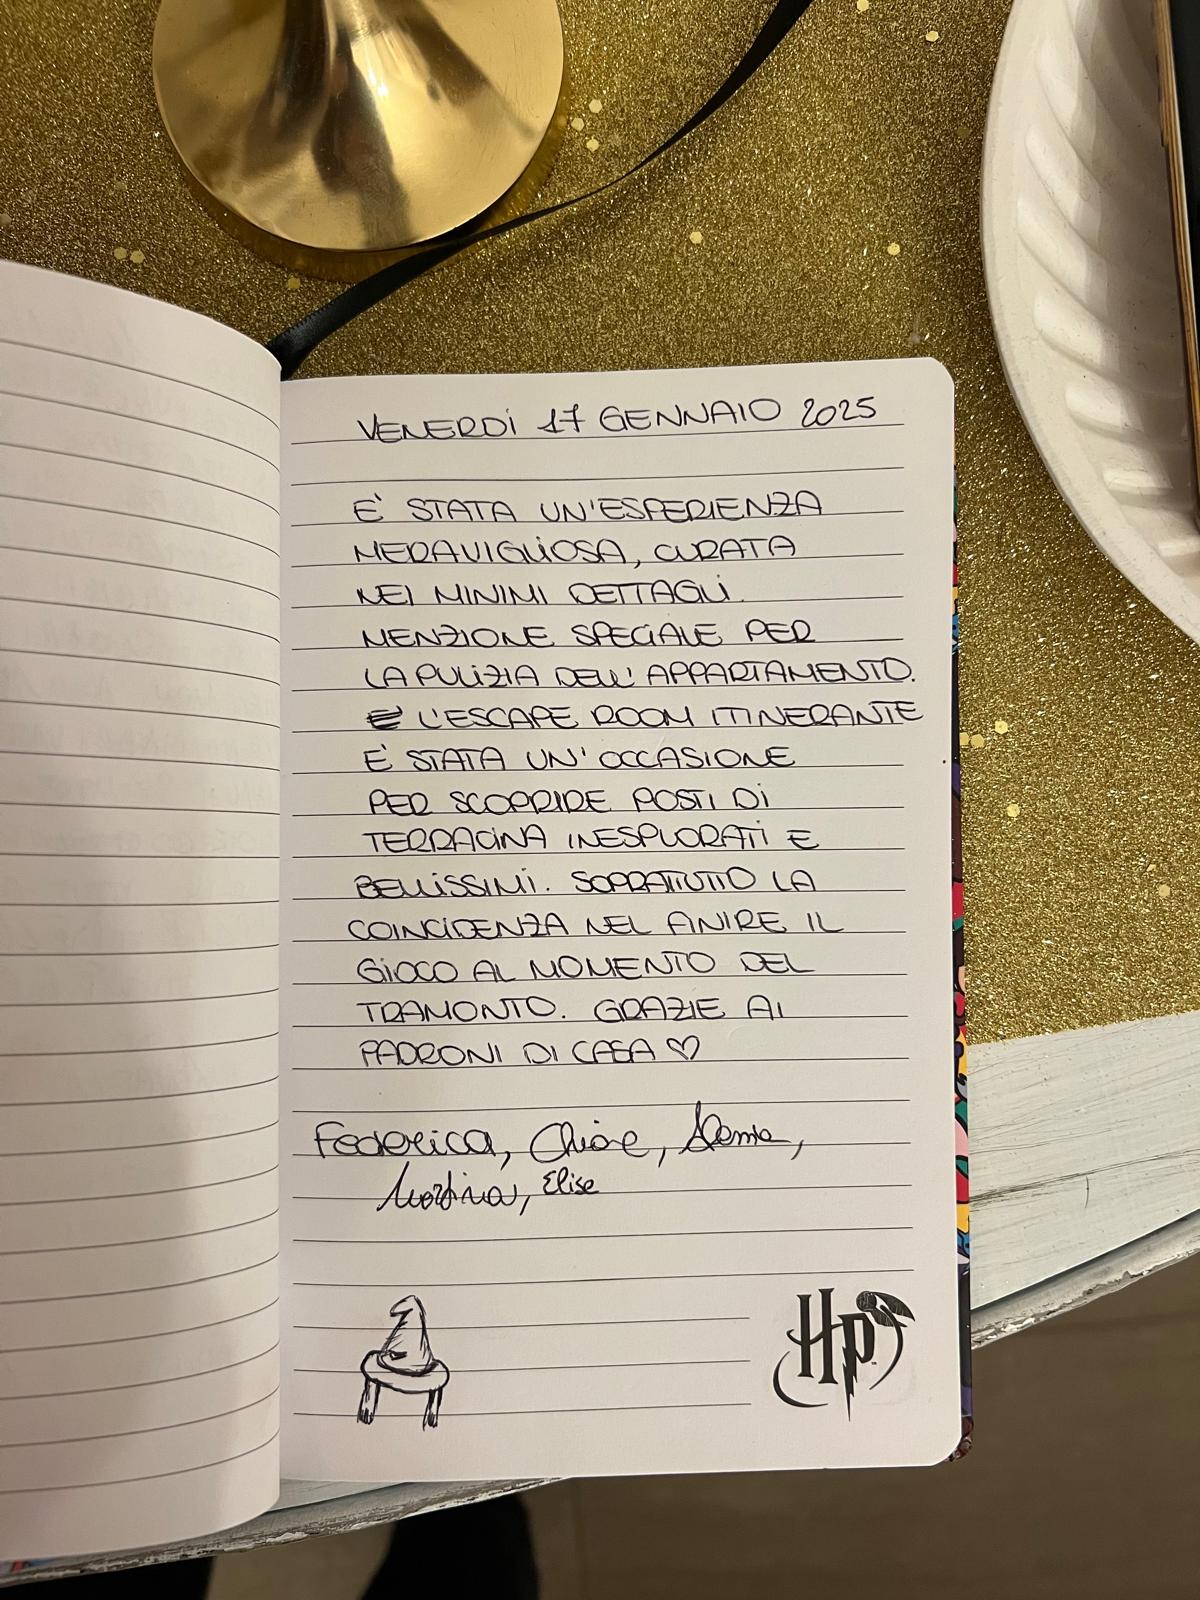 VENERDÌ 17 GENNAIO 2025
E' STATA UN'ESPERIENZA
MERAVIGLIOSA, CURATA
NEI MINIMI DETTAGLI.
MENZIONE SPECIALE PER
LA PULIZIA DELL'APPARTAMENTO.
L'ESCAPE ROOM ITINERANTE
E' STATA UN'OCCASIONE
PER SCOPRIRE POSTI DI
TERRACINA INESPLORATI E
BELLISSIMI. SOPRATUTTO LA
COINCIDENZA NEL FINIRE IL
GIOCO AL MOMENTO DEL
TRAMONTO. GRAZIE AI
PADRONI DI CASA ♡
Federica, Chiara,
Martina, Elisa
HP